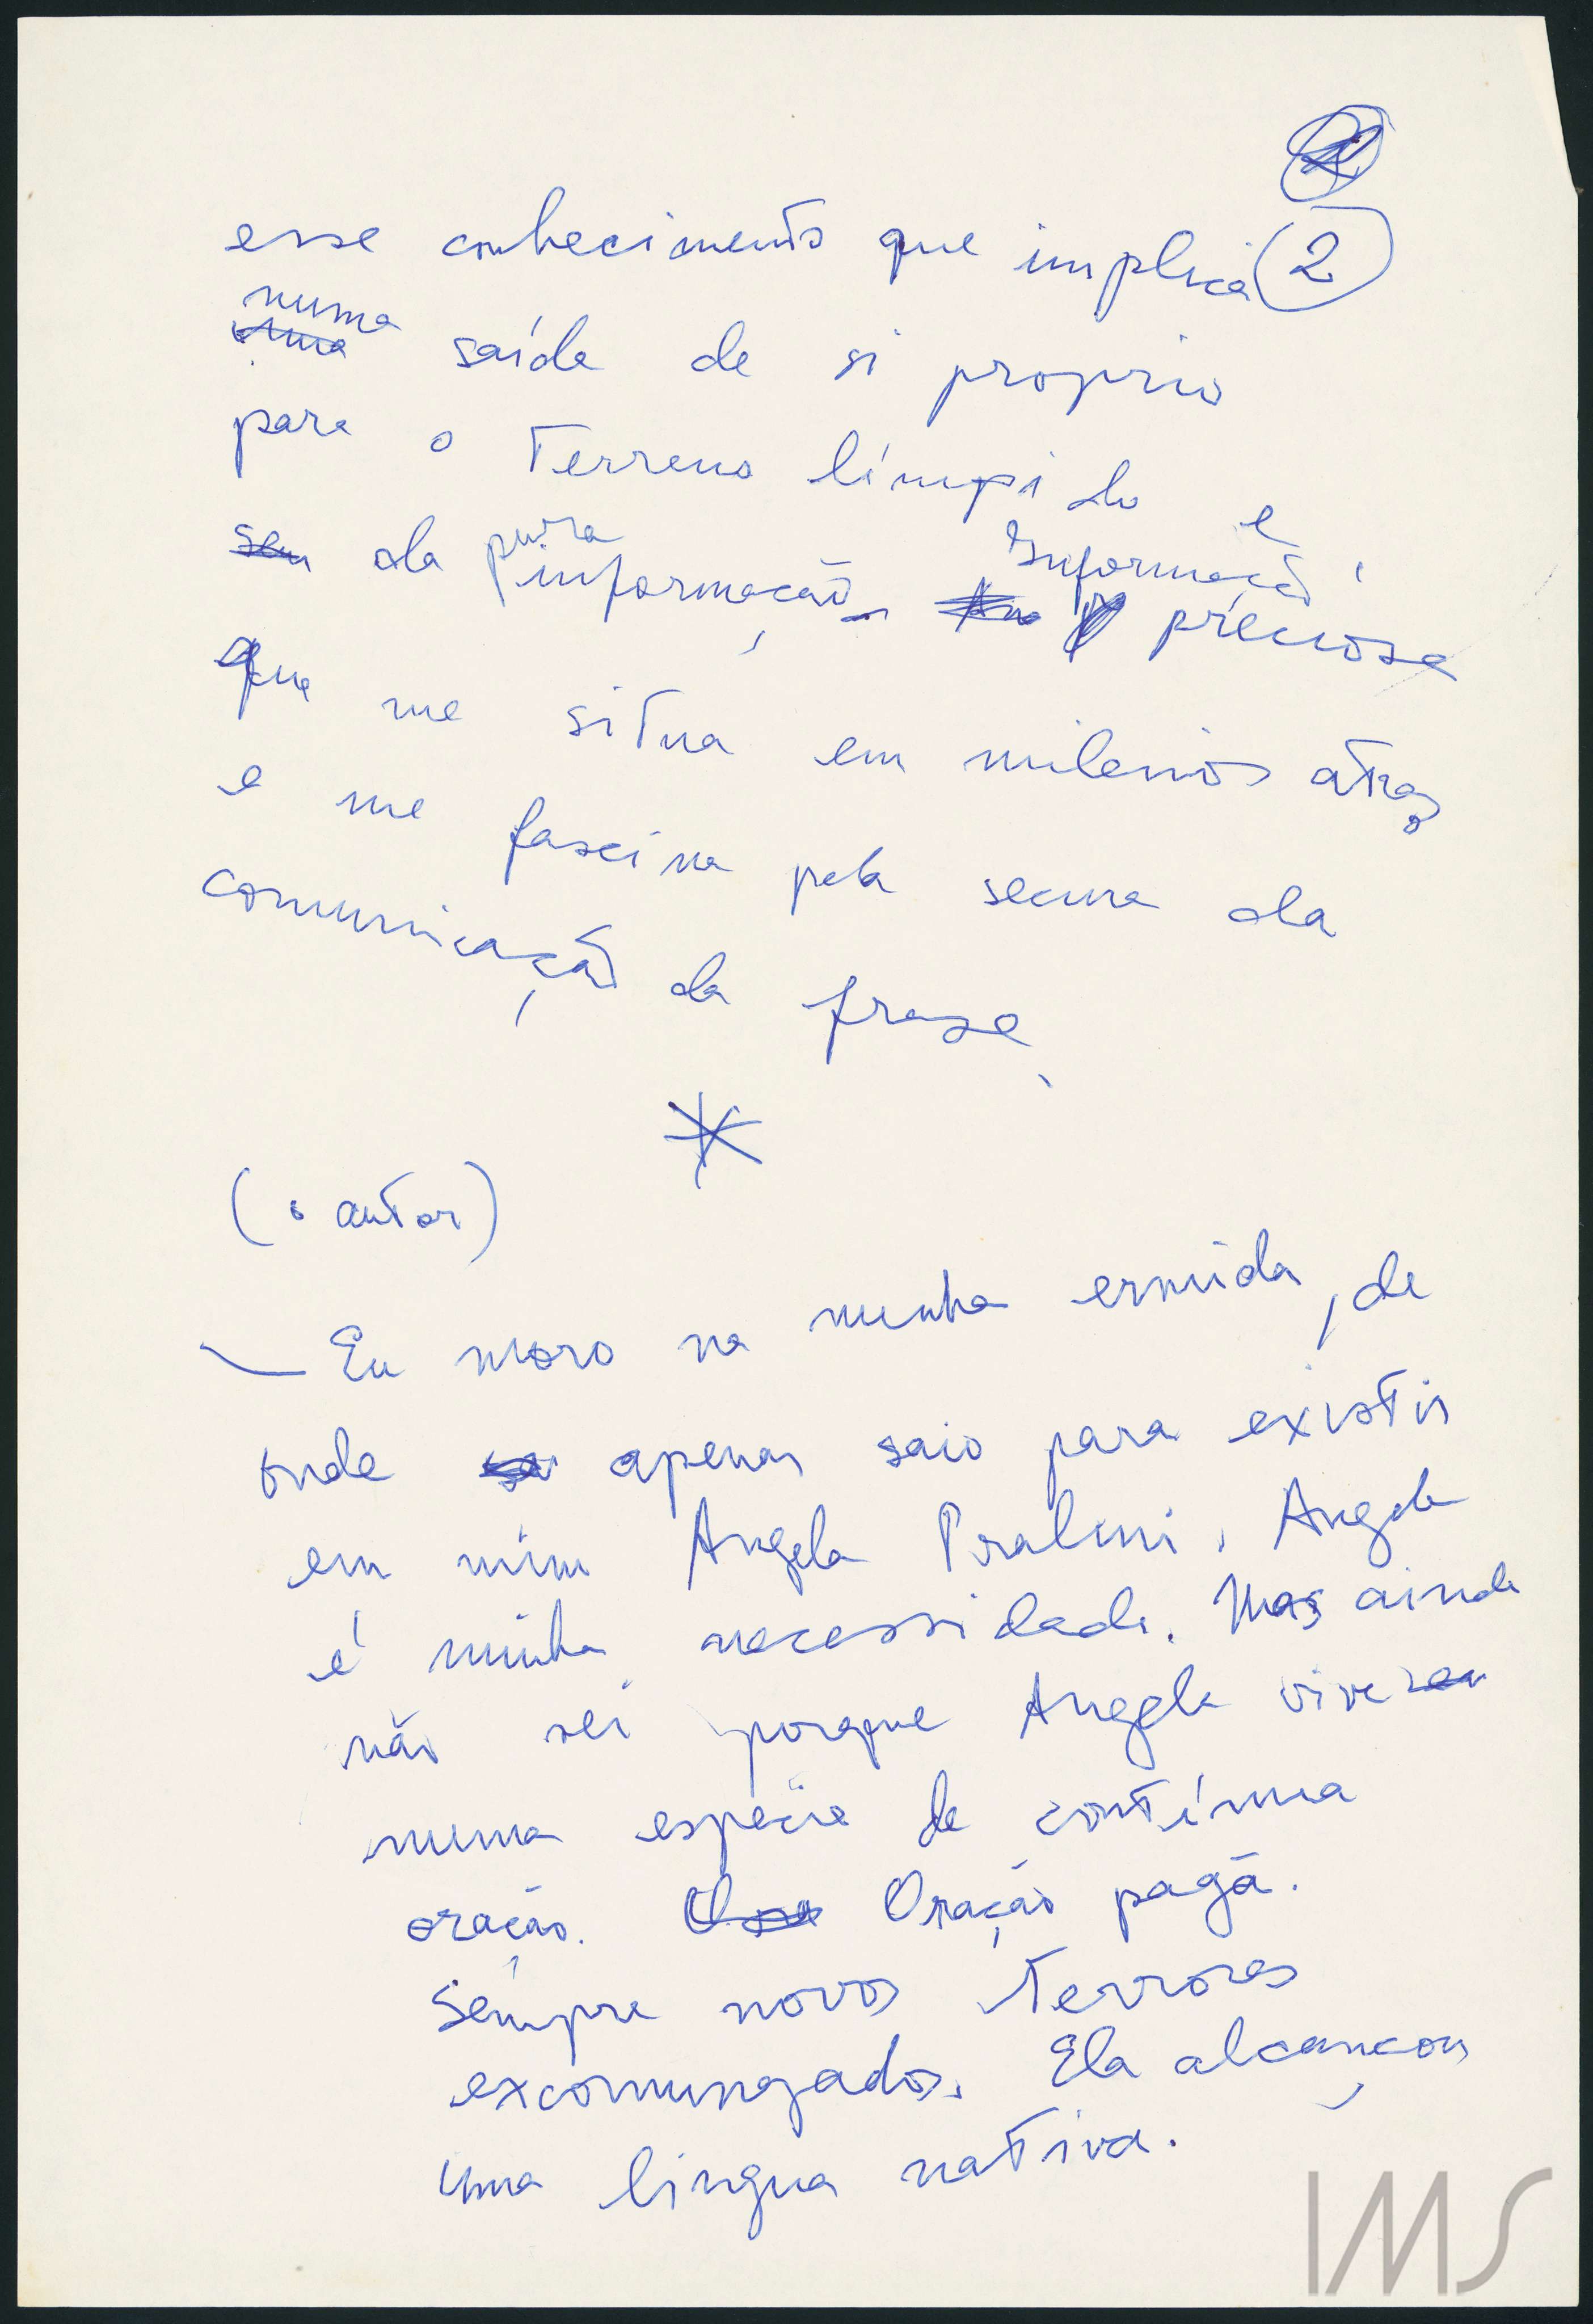 esse conhecimento que implica 2
numa
uma saída de si proprio
para o terreno límpido
sem da pura informação. Informação é preciosa
que me situa em milenios atraz
e me fascina pela secura da
comunicação da frase.
*
(o autor)
— Eu moro na minha ermida, de
onde apenas saio para existir
em mim Angela Pralini. Angela
é minha necessidade. Mas ainda
não sei porque Angela vive
numa espécie de contínua
oração. Oração pagã.
Sempre novos terrores
excomungados. Ela alcançou
uma lingua nativa.
IMS